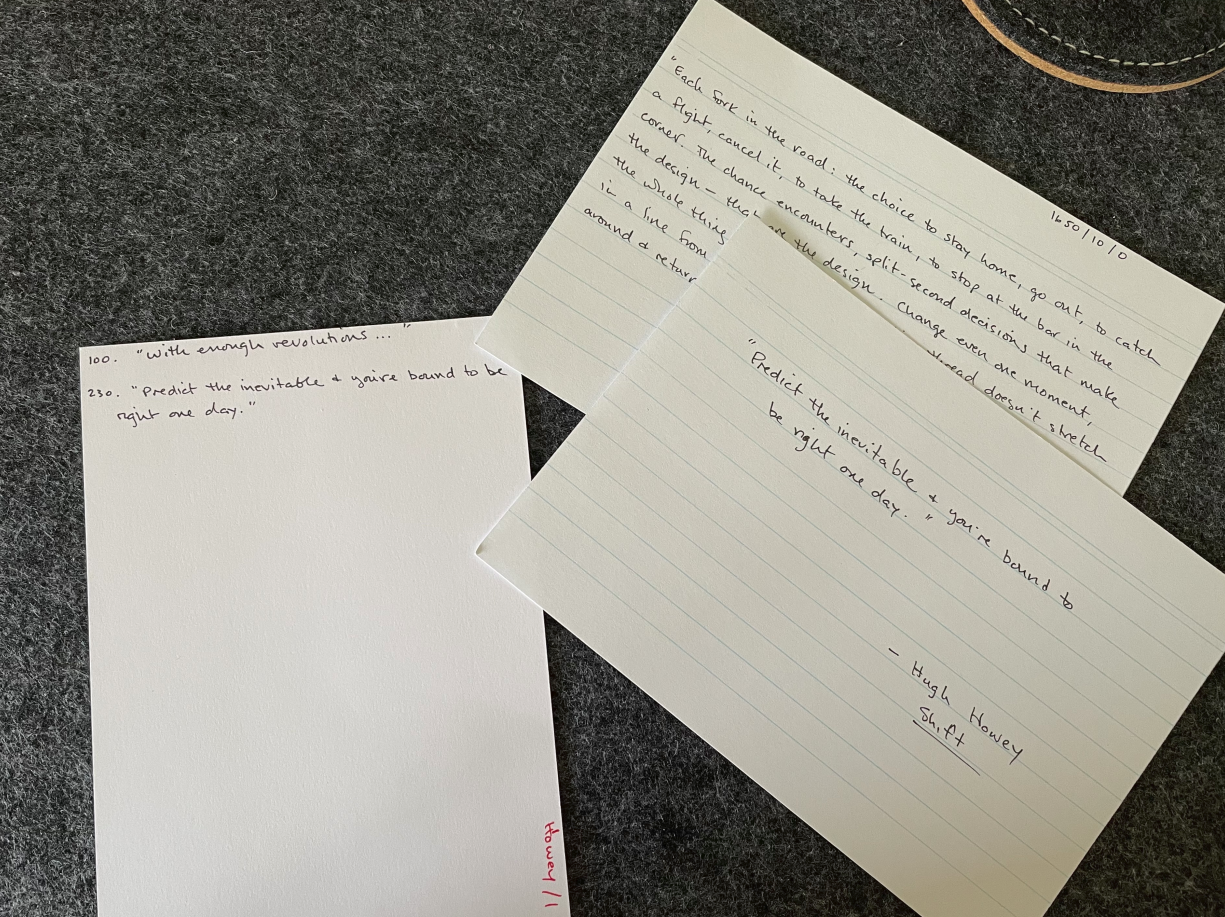 100. "with enough revolutions ..."
230. "Predict the inevitable + you're bound to be
right one day."
Howey/1
1650/10/0
"Each fork in the road: the choice to stay home, go out, to catch
a flight, cancel it, to take the train, to stop at the bar in the
corner. The chance encounters, split-second decisions that make
the design — are the design. Change even one moment,
the whole thing thread doesn't stretch
in a line from
around + return
"Predict the inevitable + you're bound to
be right one day."
- Hugh Howey
Shift